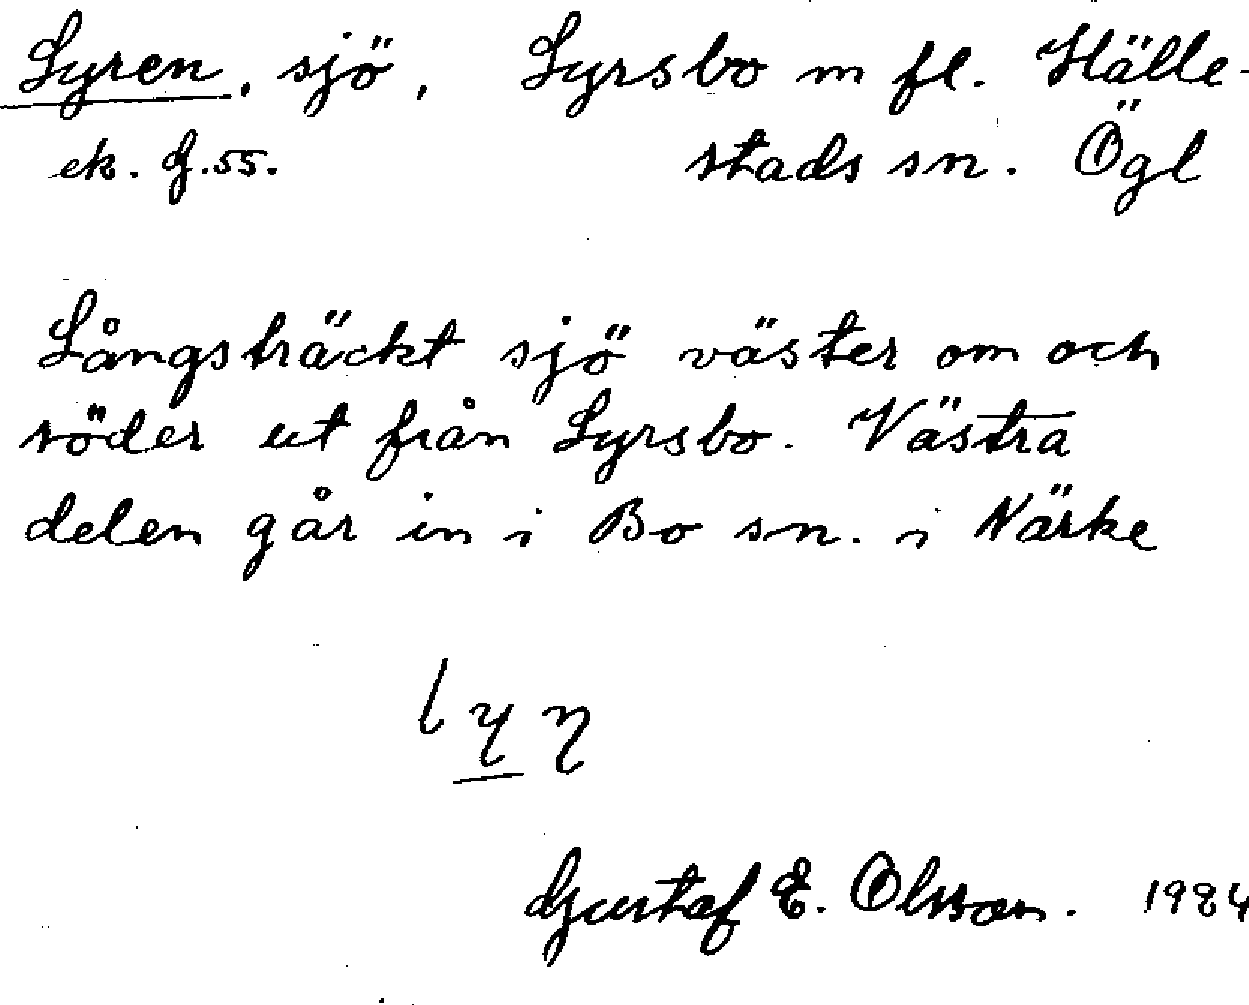 Lyren, sjö, Lyrsbo m fl. Hälle-
ek. G.55. stads sn. Ögl
Långsträckt sjö väster om och
söder ut från Lyrsbo. Västra
delen går in i Bo sn. i Närke
lyŋ
Gustaf E. Olsson. 1984